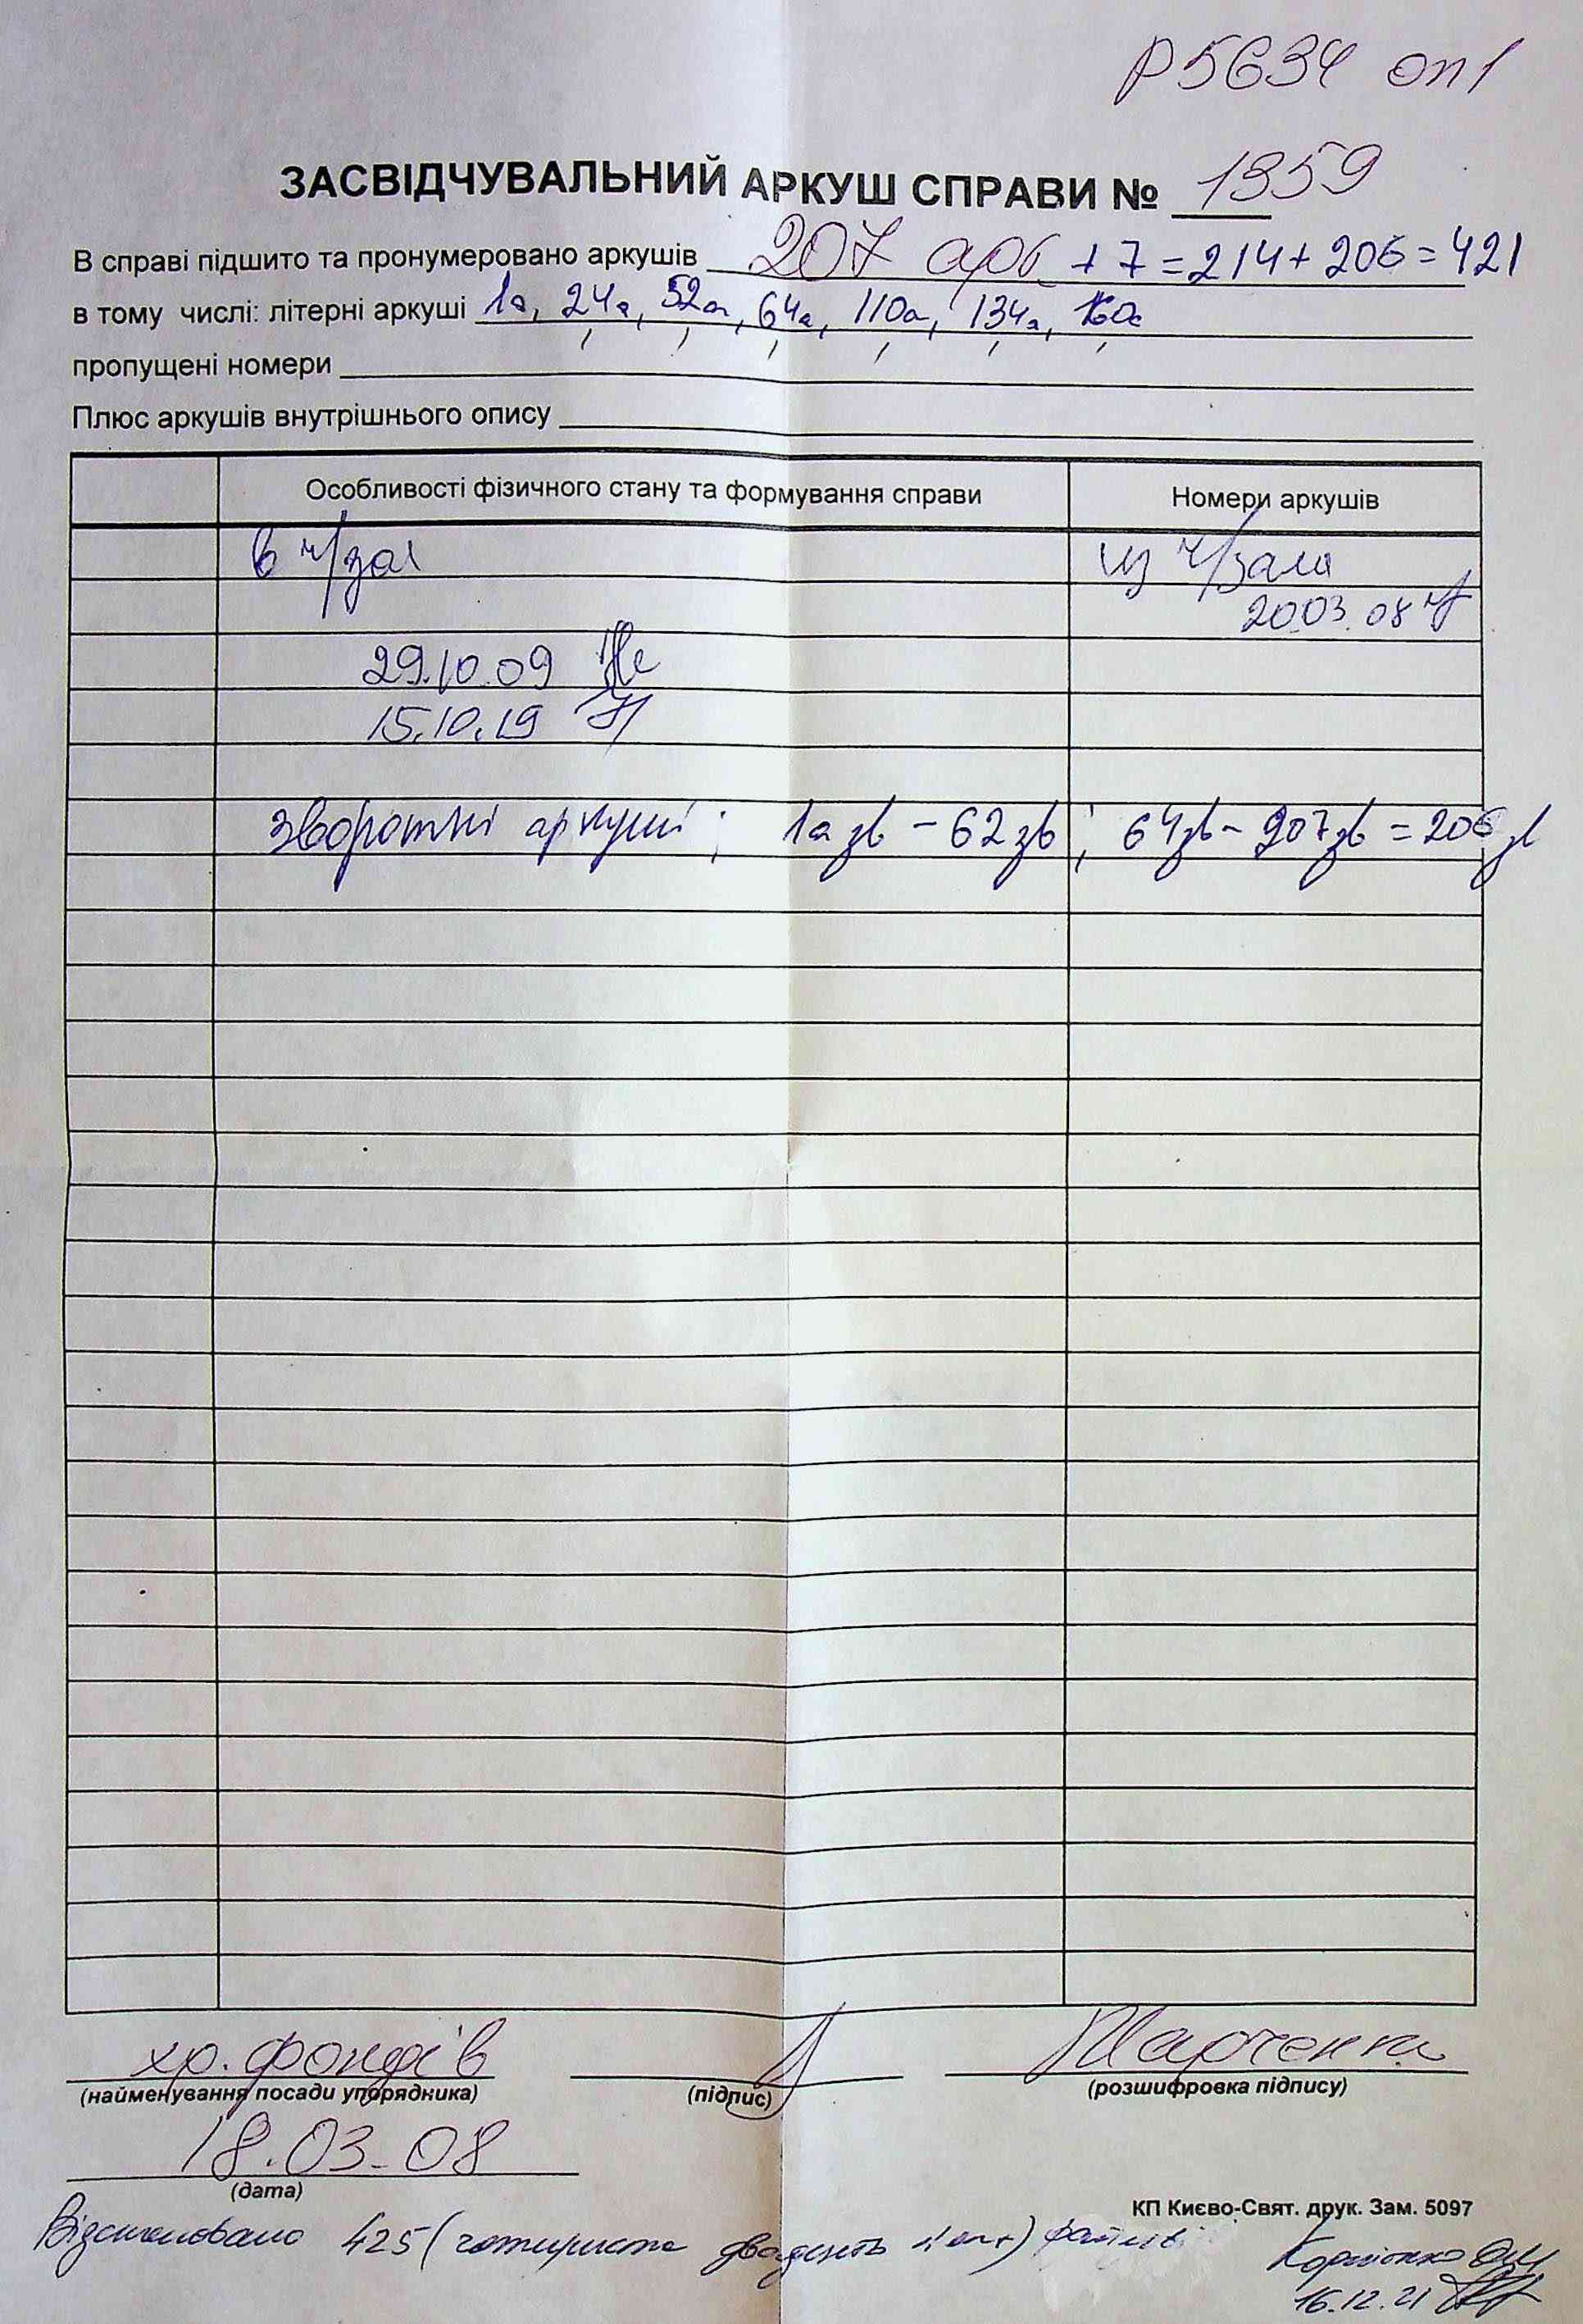 Р5634 оп1
ЗАСВІДЧУВАЛЬНИЙ АРКУШ СПРАВИ № 1359
В справі підшито та пронумеровано аркушів 207 арк + 7 = 214 + 206 = 421
в тому числі: літерні аркуші 1а, 24а, 52а, 64а, 110а, 134а, 160а
пропущені номери
Плюс аркушів внутрішнього опису
Особливості фізичного стану та формування справи Номери аркушів
в ч/зал из ч/зала
20.03.08
29.10.09
15.10.19
зворотні аркуші: 1а зв - 62 зв; 64зв - 207зв = 206 зв
хр. фондів Марченко
(найменування посади упорядника) (підпис) (розшифровка підпису)
18.03.08
(дата)
КП Києво-Свят. друк. Зам. 5097
Відскановано 425 (чотириста двадцять п'ять) файлів
16.12.21